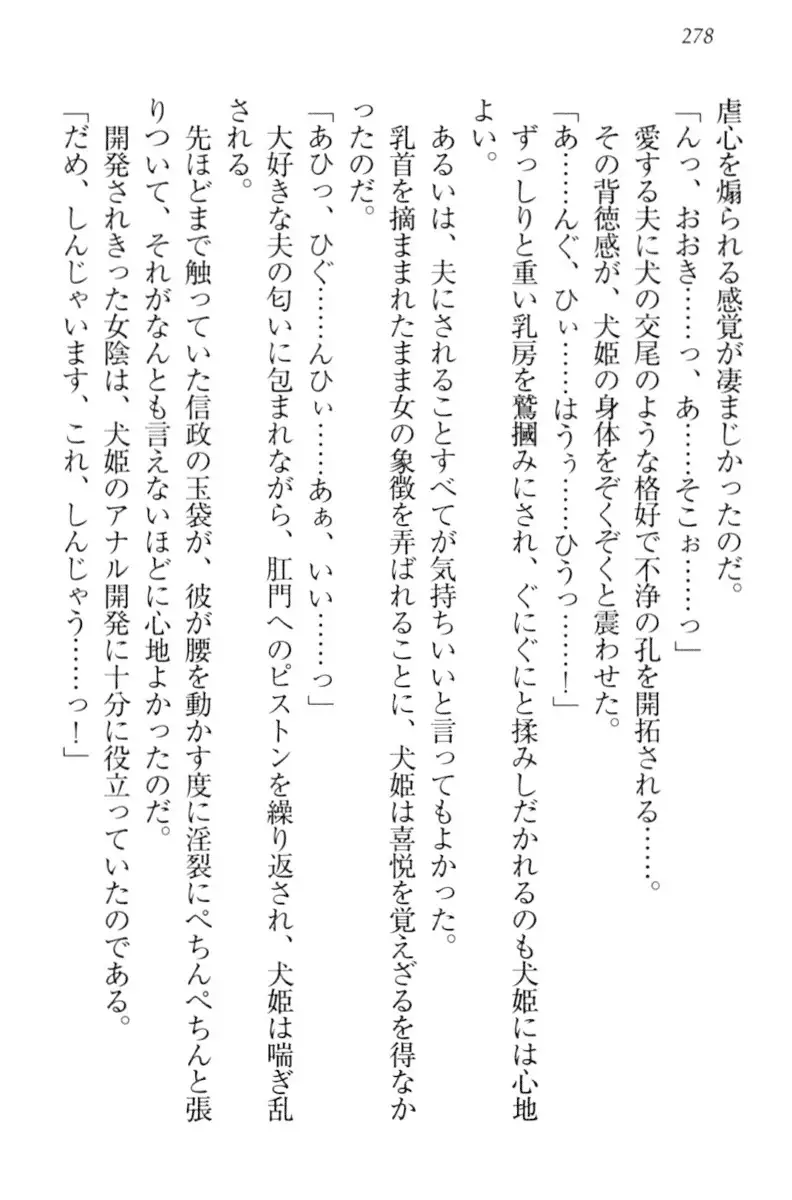 278
虐心を煽られる感覚が凄まじかったのだ。
「んっ、おおき……っ、あ……そこぉ……っ」
愛する夫に犬の交尾のような格好で不浄の孔を開拓される……。
その背徳感が、犬姫の身体をぞくぞくと震わせた。
「あ……んぐ、ひぃ……はうぅ……ひうっ……！」
ずっしりと重い乳房を鷲摑みにされ、ぐにぐにと揉みしだかれるのも犬姫には心地
よい。
あるいは、夫にされることすべてが気持ちいいと言ってもよかった。
乳首を摘ままれたまま女の象徴を弄ばれることに、犬姫は喜悦を覚えざるを得なか
ったのだ。
「あひっ、ひぐ……んひぃ……あぁ、いい……っ」
大好きな夫の匂いに包まれながら、肛門へのピストンを繰り返され、犬姫は喘ぎ乱
される。
先ほどまで触っていた信政の玉袋が、彼が腰を動かす度に淫裂にぺちんぺちんと張
りついて、それがなんとも言えないほどに心地よかったのだ。
開発されきった女陰は、犬姫のアナル開発に十分に役立っていたのである。
「だめ、しんじゃいます、これ、しんじゃう……っ！」